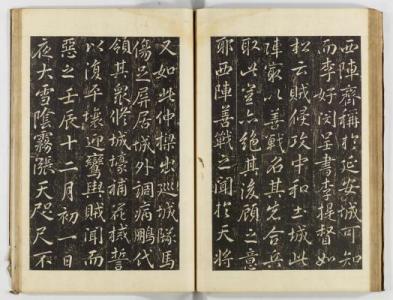 西陣齊稱於延安城可知
而李好閔呈書李提督如
松云賊候攻中和土城此
陣最以善戰名其先合兵
取此營六絶其後顧之意
耶西陣善戰之聞於天將
又如此仲樑出巡城隊馬
傷足屏居城外調病鵬代
領其衆修城壕補器械誓
以復平壤迎鸞輿賊聞而
惡之壬辰十二月初一日
夜大雪陰霧漲天咫尺不